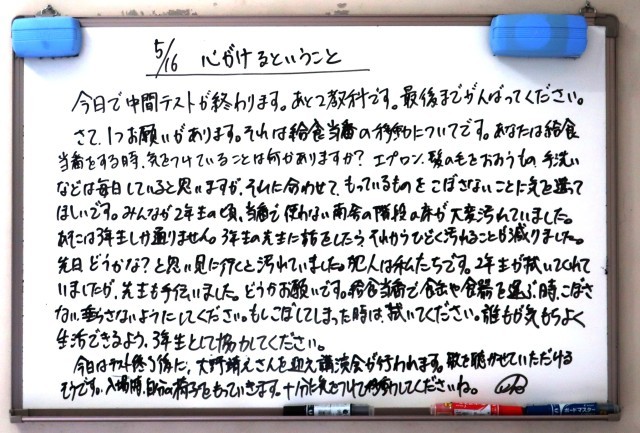 5/16 心がけるということ
今日で中間テストが終わります。あと2教科です。最後までがんばってください。
さて、1つお願いがあります。それは給食当番の移動についてです。あなたは給食
当番をする時、気をつけていることは何かありますか？エプロン、髪の毛をおおうもの、手洗い
などは毎日していると思いますが、それに合わせて、もっているものをこぼさないことに気を遣って
ほしいです。みんなが2年生の頃、当番で使わない南舎の階段の床が大変汚れていました。
あそこは3年生しか通りません。3年生の先生に話をしたら、それからひどく汚れることが減りました。
先日どうかな？と思い見に行くと汚れていました。犯人は私たちです。2年生が拭いてくれて
いましたが、先生も手伝いました。どうかお願いです。給食当番で食缶や食器を運ぶ時、こぼさ
ない、垂らさないようにしてください。もしこぼしてしまった時は、拭いてください。誰もが気もちよく
生活できるよう、3年生として協力してください。
今日はテスト終了後に、大野靖之さんを迎え講演会が行われます。歌を聴かせていただける
そうです。入場時、自分の椅子をもっていきます。十分に気をつけて移動してくださいね。
ボードマスター